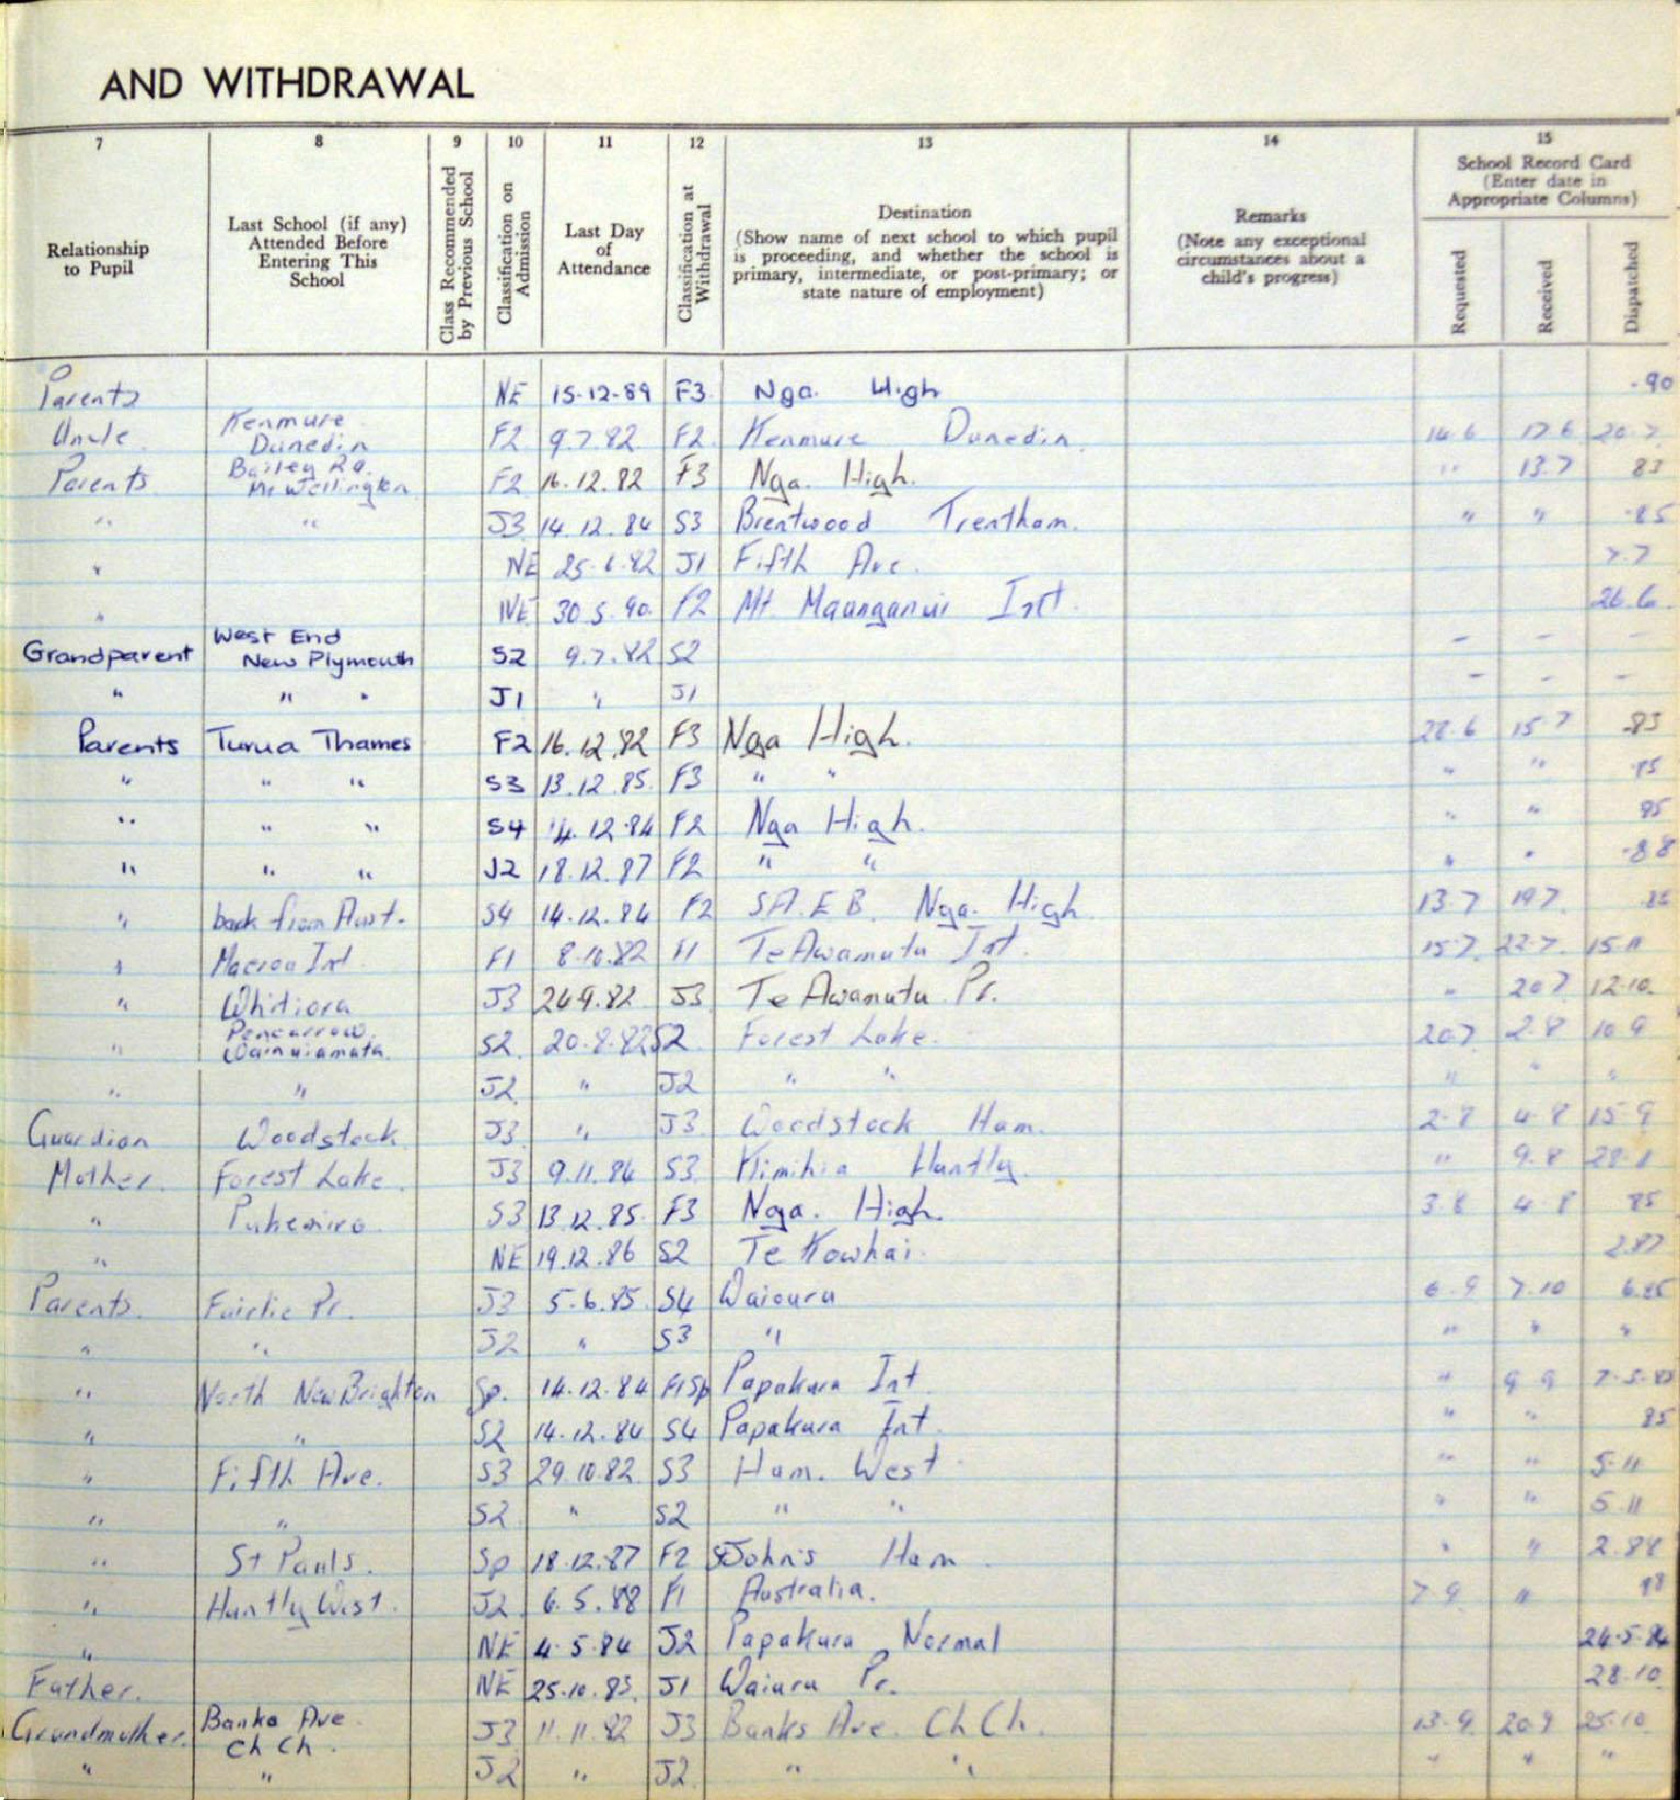 AND WITHDRAWAL
7 8 9 10 11 12 13 14 15
Relationship to Pupil
Last School (if any) Attended Before Entering This School
Class Recommended by Previous School
Classification on Admission
Last Day of Attendance
Classification at Withdrawal
Destination
(Show name of next school to which pupil is proceeding, and whether the school is primary, intermediate, or post-primary; or state nature of employment)
Remarks
(Note any exceptional circumstances about a child's progress)
School Record Card
(Enter date in Appropriate Columns)
Requested Received Dispatched
Parents NE 15-12-89 F3 Nga. High -90
Uncle Kenmure Dunedin F2 9.7.82 F2 Kenmure Dunedin 14.6 17.6 20.7
Parents Bailey Rd. Mt Wellington F2 16.12.82 F3 Nga. High. " 13.7 83
" " J3 14.12.84 S3 Brentwood Trentham. " " -85
" NE 25.6.82 J1 Fifth Ave. 7.7
" NE 30.5.90. F2 Mt. Maunganui Int. 26.6.
Grandparent West End New Plymouth S2 9.7.82 S2 - - -
" " " J1 " J1 - - -
Parents Turua Thames F2 16.12.82 F3 Nga High. 28.6 15.7 -83
" " " S3 13.12.85. F3 " " " " 85
" " " S4 14.12.84 F2 Nga High. " " 85
" " " J2 18.12.87 F2 " " " " -88
" back from Aust. S4 14.12.84 F2 S.A.E.B. Nga. High 13.7 19.7
" Macroa Int F1 8.10.82 F1 Te Awamutu Int. 15.7. 22.7. 15.11
" Whitiora J3 24.9.82 J3 Te Awamutu Pr. " 20.7 12.10.
" Pencarrow Wainuiomata. S2. 20.8.82 S2. Forest Lake. 20.7 2.8 10.9
" " J2. " J2 " " " " "
Guardian Woodstock J3 " J3. Woodstock Ham. 2.8 4.8 15.9
Mother. Forest Lake. J3 9.11.84 S3. Kimihia Huntly. " 9.8
" Pukemiro. S3 13.12.85. F3 Nga. High. 3.8 4.8 85
" NE 19.12.86 S2 Te Kowhai. 2.87
Parents. Fairlie Pr. J3 5.6.85. S4 Waioura 6.9 7.10 6.85
" " J2 " S3 " " " "
" North New Brighton Sp. 14.12.84 F1Sp Papakura Int. " 9.9 7.5.85
" " S2 14.12.84 S4 Papakura Int. " " 85
" Fifth Ave. S3 29.10.82 S3 Ham. West " " 5.11
" " S2 " S2 " " " " 5.11
" St Pauls. Sp 18.12.87 F2 St John's Ham. " " 2.88
" Huntly West. J2 6.5.88 F1 Australia. 7.9 " 88
" NE 4.5.84 J2 Papakura Normal 24.5.84
Father. NE 25.10.85. J1 Waiuru Pr. 28.10
Grandmother. Banks Ave. Ch Ch. J3 11.11.82 J3 Banks Ave. Ch Ch. 13.9. 20.9 25.10
" " J2 " J2. " " " " "